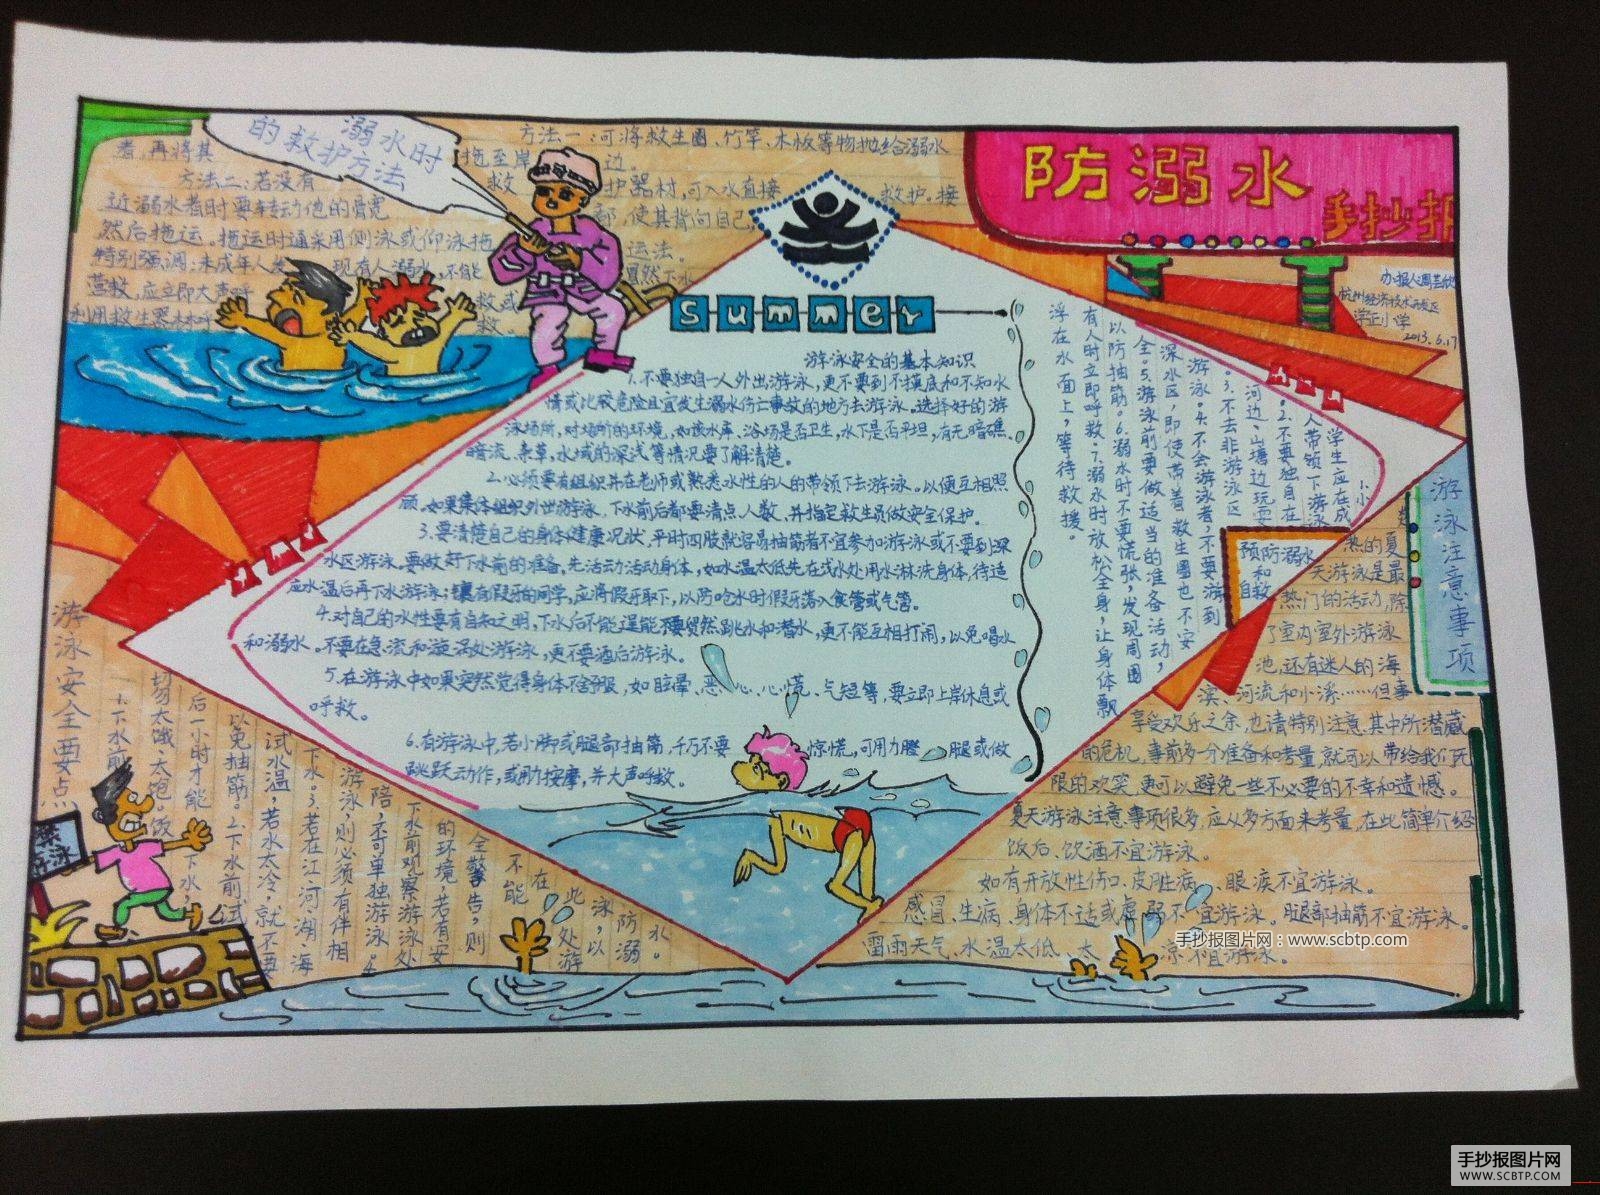 防溺水
手抄报
办报人周芸欣
杭州经济技术开发区
学正小学
2013.6.17
溺水时
的救护方法
方法一：可将救生圈、竹竿、木板等物抛给溺水
者，再将其
拖至岸
边。
方法二：若没有
救
护器材，可入水直接
救护。接
近溺水者时要转动他的髋
部，使其背向自己，
然后拖运。拖运时通常采用侧泳或仰泳拖
运法。
特别强调：未成年人发
现有人溺水，不能
冒然下水
营救，应立即大声呼
救或
利用救生器材呼
救。
summer
游泳安全的基本知识
1.不要独自一人外出游泳，更不要到不摸底和不知水
情或比较危险且宜发生溺水伤亡事故的地方去游泳。选择好的游
泳场所，对场所的环境，如该水库、浴场是否卫生，水下是否平坦，有无暗礁、
暗流、杂草，水域的深浅等情况要了解清楚。
2.必须要有组织并在老师或熟悉水性的人的带领下去游泳。以便互相照
顾。如果集体组织外出游泳，下水前后都要清点人数，并指定救生员做安全保护。
3.要清楚自己的身体健康况状，平时四肢就容易抽筋者不宜参加游泳或不要到深
水区游泳。要做好下水前的准备，先活动活动身体，如水温太低先在浅水处用水淋洗身体，待适
应水温后再下水游泳；镶有假牙的同学，应将假牙取下，以防呛水时假牙落入食管或气管。
4.对自己的水性要有自知之明，下水后不能逞能不要贸然跳水和潜水，更不能互相打闹，以免喝水
和溺水。不要在急流和漩涡处游泳，更不要酒后游泳。
5.在游泳中如果突然觉得身体不舒服，如眩晕、恶心、心慌、气短等，要立即上岸休息或
呼救。
6.有游泳中，若小脚或腿部抽筋，千万不要惊慌，可用力蹬腿或做
跳跃动作，或用力按摩，并大声呼救。
预防溺水
和
自救
1.小
学生应在成
人带领下游泳
2.不要独自在
河边、山塘边玩耍
3.不去非游泳区
游泳。4.不会游泳者，不要游到
深水区，即使带着救生圈也不安
全。5.游泳前要做适当的准备活动，
以防抽筋。6.溺水时不要慌张，发现周围
有人时立即呼救。7.溺水时放松全身，让身体飘
浮在水面上，等待救援。
游泳注意事项
热的夏
天游泳是最
热门的活动，除
了室内室外游泳
池，还有迷人的海
滨、河流和小溪……但事
享受欢乐之余，也请特别注意，其中所潜藏
的危机，事前多一分准备和考量，就可以带给我们无
限的欢笑，更可以避免一些不必要的不幸和遗憾。
夏天游泳注意事项很多，应从多方面来考量，在此简单介绍
饭后、饮酒不宜游泳。
如有开放性伤口、皮肤病、眼疾不宜游泳。
感冒、生病、身体不适或虚弱不宜游泳，腿部抽筋不宜游泳。
雷雨天气、水温太低、太凉不宜游泳。
游泳安全要点
禁
游泳
1.下水前
切勿太饿、太饱。饭
后一小时才能下水，
以免抽筋。2.下水前试
试水温，若水太冷，就不要
下水。3.若在江、河、湖、海
游泳，则必须有伴相
陪，不可单独游泳。4.
下水前观察游泳处
的环境，若有安
全警告，则
不能
在此处游
泳，以
防溺
水。
手抄报图片网：www.scbtp.com
手抄报图片网
WWW.SCBTP.COM